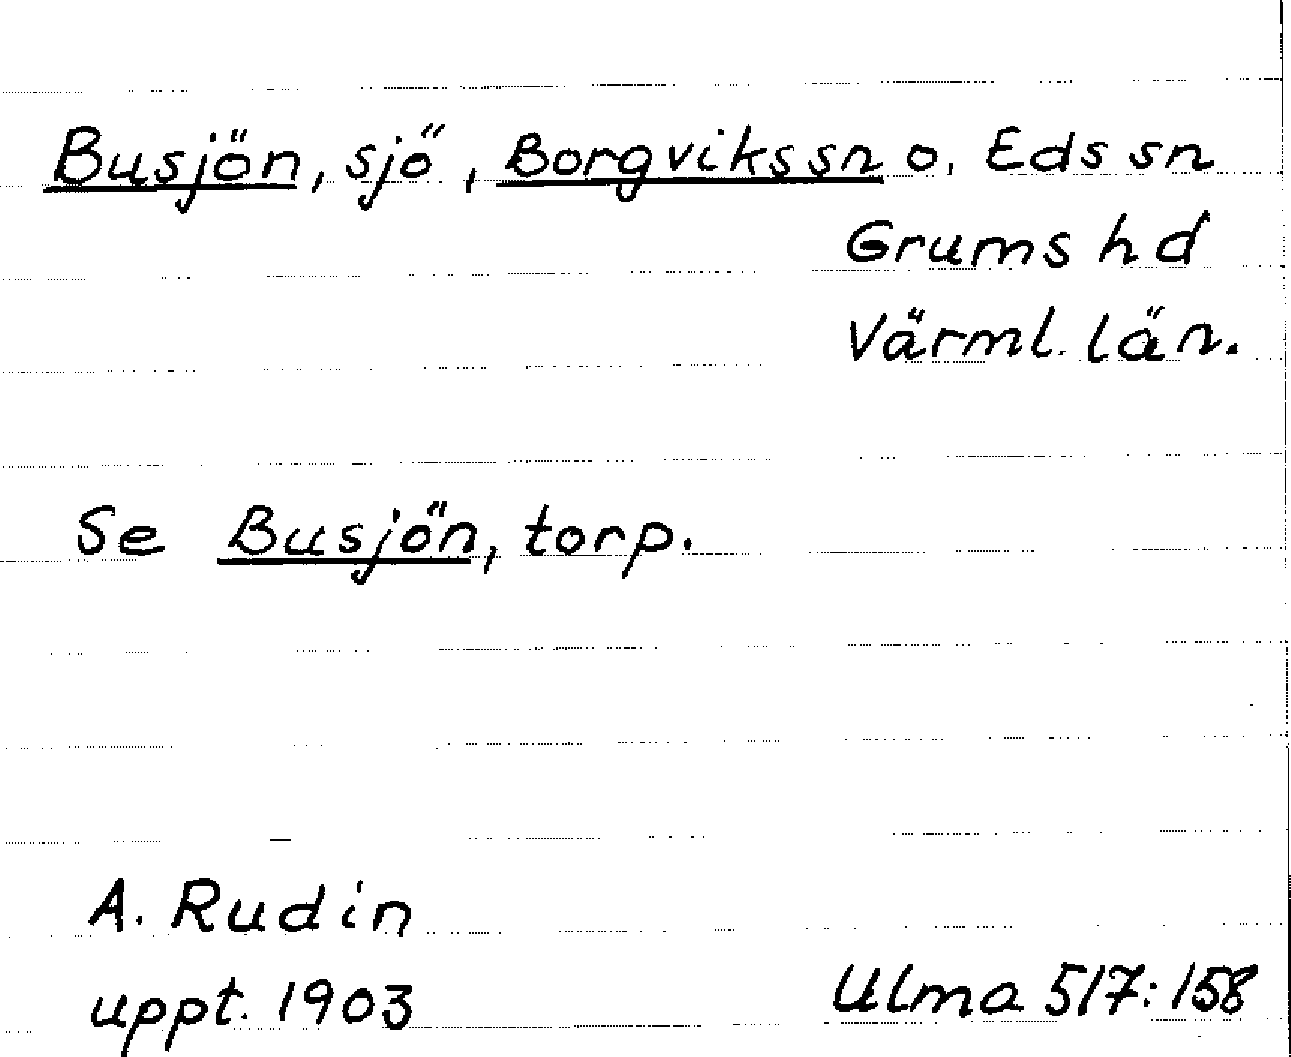 Busjön, sjö, Borgvikssn o. Eds sn
Grums hd
Värml. län.
Se Busjön, torp.
A. Rudin
uppt. 1903
Ulma 517:158